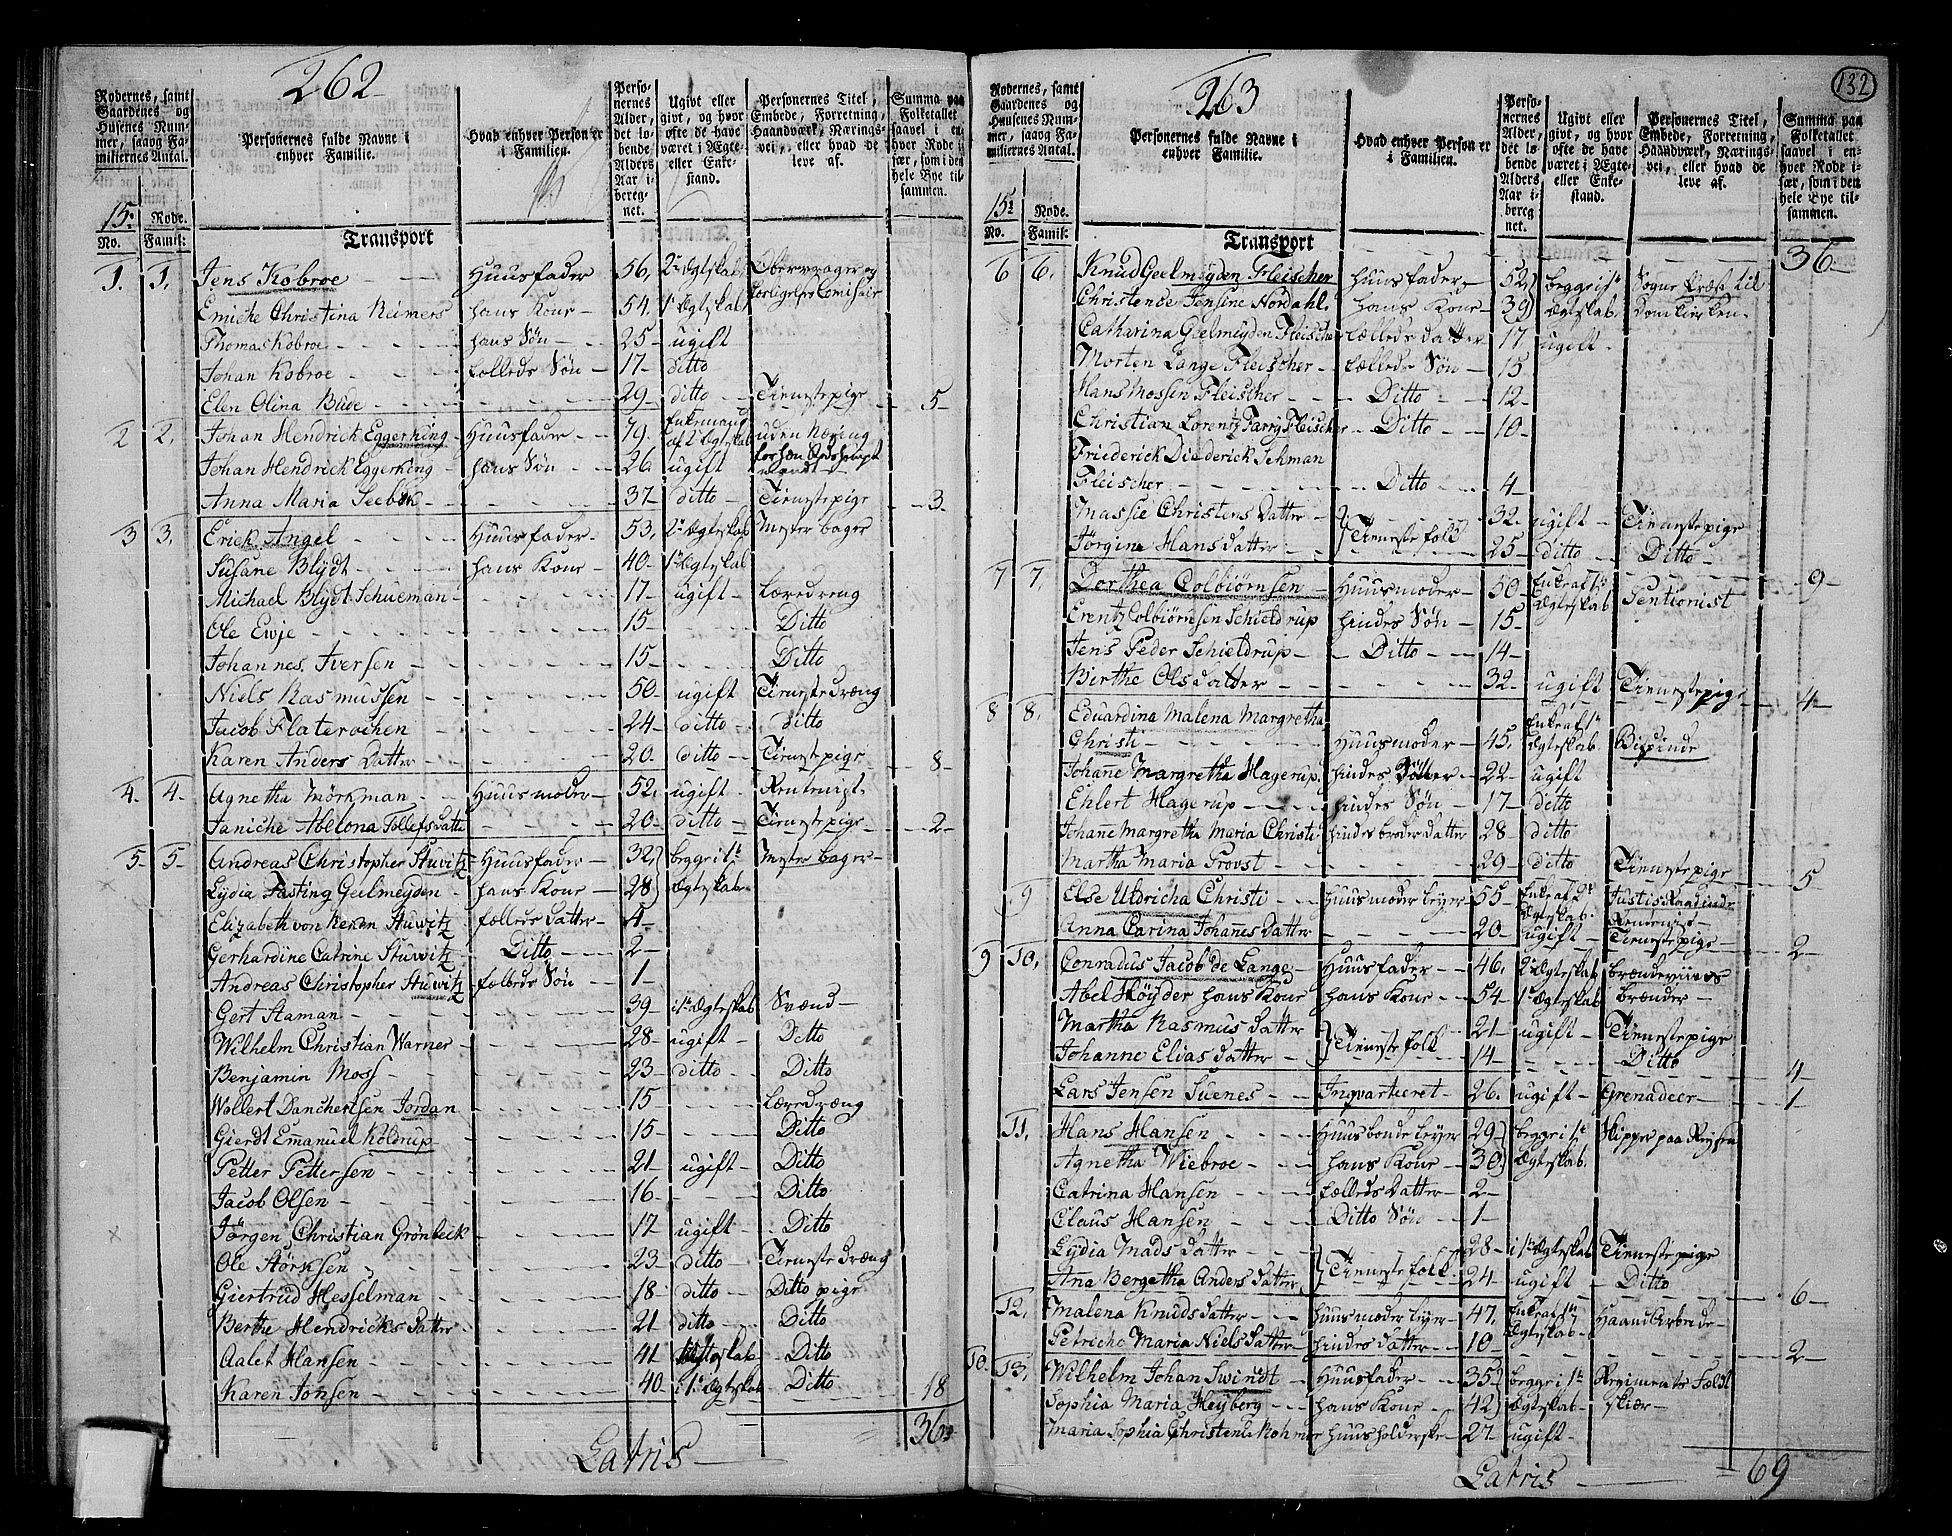 262
Rodernes, samt Gaardenes og Husenes Nummer, saaog Familiernes Antal.
Personernes fulde Navne i enhver Familie.
Hvad enhver Person er i Familien.
Personernes Alder, det løbende Alders Aar iberegnet.
Ugivt eller givt, og hvor ofte de have været i Ægte- eller Enkestand.
Personernes Titel, Embede, Forretning, Haandværk, Næringsvei, eller hvad de leve af.
Summa paa Folketallet saavel i enhver Rode især, som i den hele Bye tilsammen.
15: Rode.
No. Famil:
Transport
1. 1. Jens Kobroe Huusfader 56, 2 Ægtskab Oberwrager og Forligelses Comisair
Emicke Christina Reimers hans Kone 54, 1 Ægtskab
Thomas Kobroe hans Søn 25 ugift
Johan Kobroe Fælleds Søn 17 ditto
Elen Olina Bude 29 ditto Tienestepige 5
2 2. Johan Hendrick Eggerking Huusfader 79. Enkemand af 2 Ægtskab uden Næring
Johan Hendrick Eggerking hans Søn 26 ugift
Anna Maria Seebek 37 ditto Tienestepige 3
3 3. Erick Angel Huusfader 53, 2 Ægteskab Mester bager
Susane Blydt hans Kone 40 1 Ægteskab
Michael Blydt Schueman 17 ugift Læredreng
Ole Ewje 15 Ditto
Johannes Iversen 15 Ditto
Niels Rasmussen 50 ugift Tienestedræng
Jacob Flaterochen 24 ditto ditto
Karen Anders Datter 20 ditto Tienestepige 8
4. 4. Agnetha Mörkman Huusmoder 52, ugift
Janiche Abelona Tollefsdatter 20 ditto Tienestepige 2
5 5 Andreas Christopher Stuwitz Huusfader 32, begge i 1te Mester bager
Lydia Fasting Geelmeyden hans Kone 28 Ægteskab
Elizabeth von Reken Stuwitz fælleds datter 4
Gerhardine Catrine Stuwitz Ditto 2
Andreas Christopher Stuwitz fælleds Søn 1
Gert Haman 39 i 1 Ægteskab Svænd
Wilhelm Christian Warner 28 ugift Ditto
Benjamin Moss 23 ditto Ditto
Wollert Danchertsen Jordan 15 Læredræng
Gierdt Emanuel Koldrup 15 Ditto
Petter Pettersen 21 ugift Ditto
Jacob Olsen 16 Ditto
Jörgen Christian Grönbeck 17 ugift Ditto
Ole Störksen 23 ditto Tienestedræng
Giertrud Hesselman 18 ditto Ditto pige
Berthe Hendricks datter 21 ditto Ditto
Aalet Hansen 41 Ditto
Karen Jonsen 40 i 1 Ægteskab Ditto 18
Latris 36
263
132
Rodernes, samt Gaardenes og Husenes Nummer, saaog Familiernes Antal.
Personernes fulde Navne i enhver Familie.
Hvad enhver Person er i Familien.
Personernes Alder, det løbende Alders Aar iberegnet.
Ugivt eller givt, og hvor ofte de have været i Ægte- eller Enkestand.
Personernes Titel, Embede, Forretning, Haandværk, Næringsvei, eller hvad de leve af.
Summa paa Folketallet saavel i enhver Rode især, som i den hele Bye tilsammen.
15: Rode.
No. Famil:
Transport 36
6 6. Knud Geelmeyden Fleischer Huusfader 52 begge i 1te Sogne Præst til
Christence Jensine Nordahl hans Kone 39 Ægteskab. Domkierken
Catharina Geelmeyden Fleischer fælleds datter 17 ugift
Morten Lange Fleischer fælleds Søn 15
Hans Mossen Fleischer Ditto 12
Christian Lorentz Tarry Fleischer Ditto 10
Friederick Diederick Sehman
Fleischer Ditto 4
Massie Christens datter Tienestefolk 32 ugift Tienestepige
Jörgine Hansdatter 25 ditto Ditto 9
7 7. Dorthea Colbiörnsen Huusmoder 50 Enke af 1te Ægteskab Pentionist
Erentz Colbiörnsen Schieldrup hindes Søn 15
Jens Peder Schieldrup Ditto 14
Birthe Olsdatter 32 ugift Tienestepige 4
8 8. Eduardina Malena Margretha
Christi Huusmoder 45, Enke af 1te Ægteskab. Bispinde
Johanne Margretha Hagerup hindes Datter 22 ugift
Ehlert Hagerup hindes Søn 17 ditto
Johanne Margretha Maria Christi hindes broder datter 28 ditto
Martha Maria Provst 29 ditto Tienestepige 5
9 Else Uldricha Christi Huusmoder leyer 55 Enke af 2 Ægteskab. Justis Raadinde
Anna Carina Johannes datter 20 ugift Tienestepige 2
9 10. Conradus Jacob de Lange Huusfader 46. 2 Ægteskab brændeviins
Abel Höyder hans Kone hans Kone 54 1 Ægteskab brænder
Martha Rasmusdatter Tienestefolk 21 ugift Tienestepige
Johanne Eliasdatter 14 Ditto 4
Lars Jensen Suenes Inqvarteret 26. ugift Grenadeer 1
11. Hans Hansen Huusbonde leyer 29 begge i 1te Skipper paa Reysen
Agnetha Wiebroe hans Kone 30 Ægteskab.
Catrina Hansen fælleds datter 2
Claus Hansen Ditto Søn 1
Lydia Madsdatter Tienestefolk 28 i 1 Ægteskab Tienestepige
Ana Bergetha Andersdatter 24 ugift Ditto 6
12. Malena Knudsdatter Huusmoder leyer 47, Enke af 1te Ægteskab Haand Arbeide
Petriche Maria Nielsdatter hindes datter 10 2
10. 13. Wilhelm Johan Swindt Huusfader 35 begge i 1te Regiments Feldt
Sophia Maria Heyberg hans Kone 42 Ægteskab skiær
Maria Sophia Christence Rohmer huusholderske 27 ugift
Latris 69